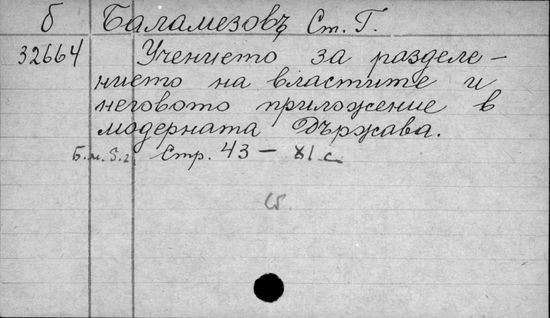 б Баламезовъ Ст. Г.
32664 Учението за разделе-
нието на властите и
неговото приложение в
модерната Държава.
Б.м.б.г. Стр. 43 — 81 с